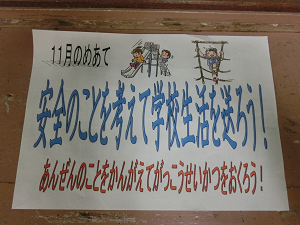 11月のめあて
安全のことを考えて学校生活を送ろう！
あんぜんのことをかんがえてがっこうせいかつをおくろう！